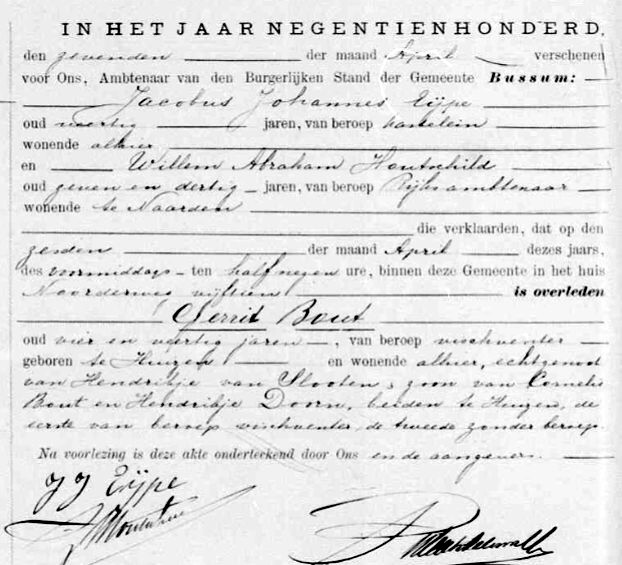 IN HET JAAR NEGENTIENHONDERD,
den zevenden der maand April verschenen
voor Ons, Ambtenaar van den Burgerlijken Stand der Gemeente Bussum:
Jacobus Johannes Eijpe
oud veertig jaren, van beroep kastelein
wonende alhier
en Willem Abraham Houtschild
oud zeven en dertig jaren, van beroep Rijksambtenaar
wonende te Naarden
die verklaarden, dat op den
zesden der maand April dezes jaars,
des voormiddags ten half negen ure, binnen deze Gemeente in het huis
Noorderweg vijftien is overleden
Gerrit Bout
oud vier en veertig jaren, van beroep vischventer
geboren te Huizen en wonende alhier, echtgenoot
van Hendrikje van Slooten, zoon van Cornelis
Bout en Hendrikje Doorn, beiden te Huizen, de
eerste van beroep vischventer, de tweede zonder beroep.
Na voorlezing is deze akte onderteekend door Ons en de aangevers.
J J Eijpe